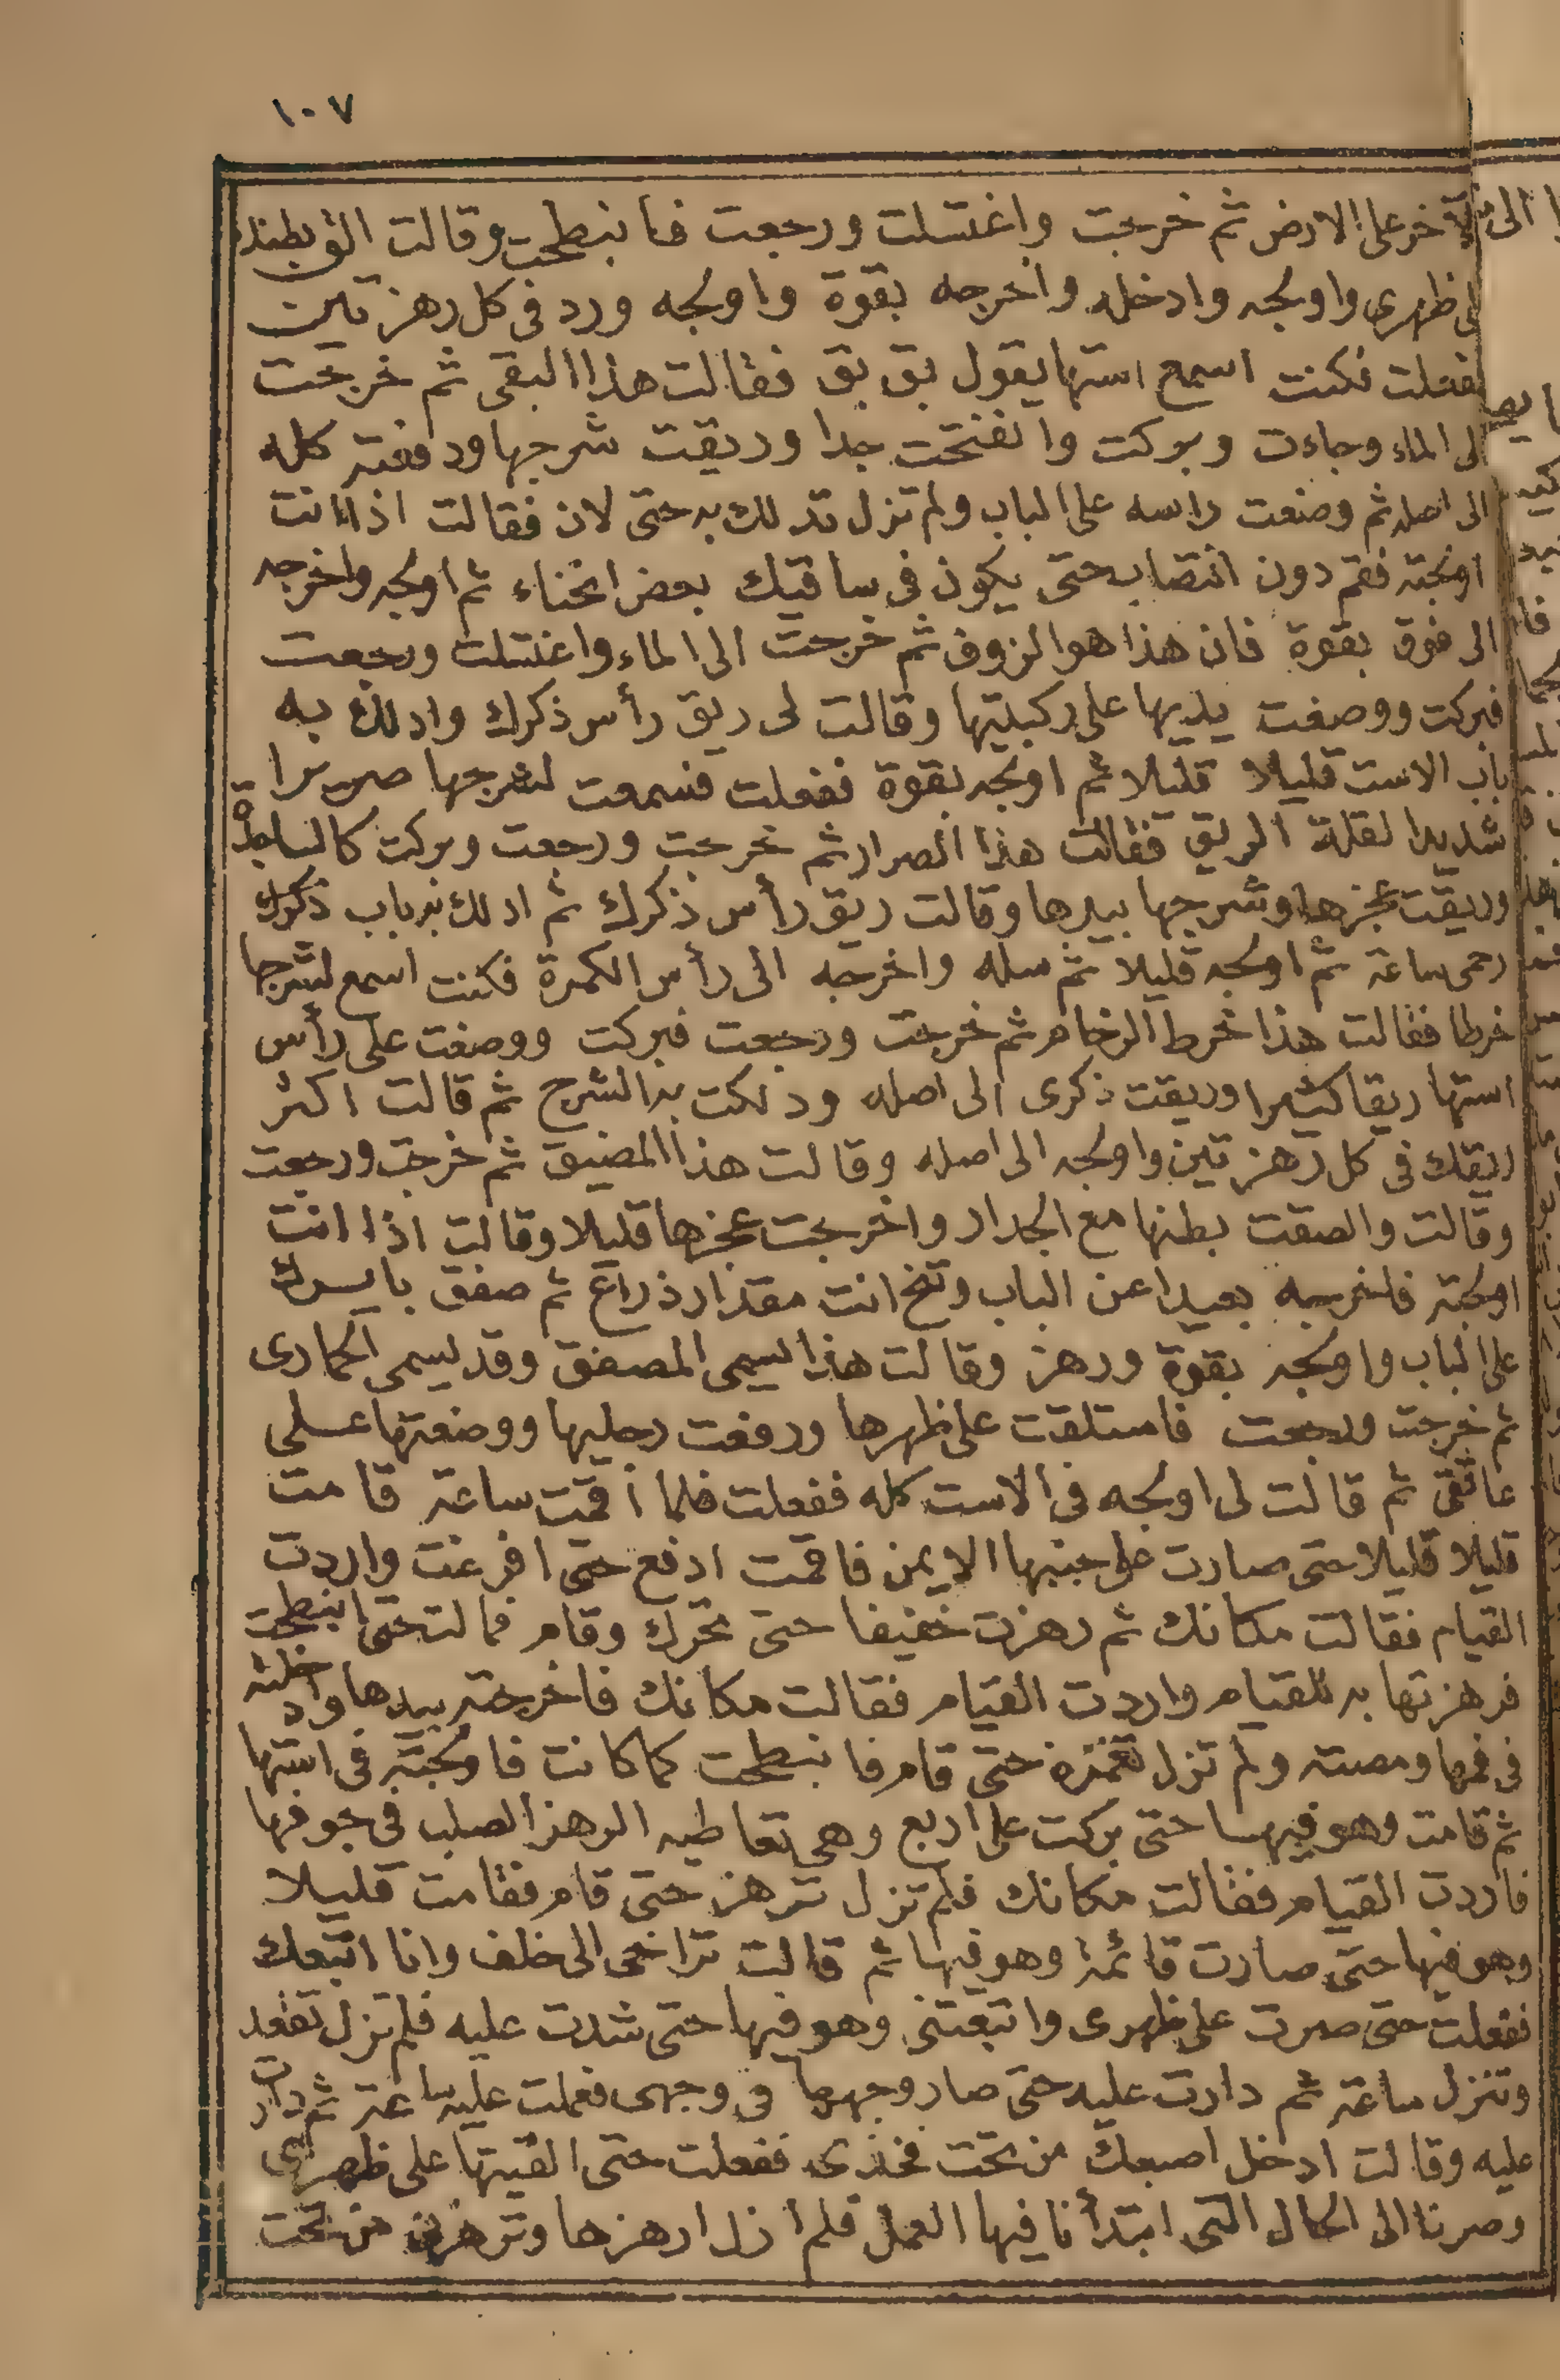 ١٠٧
الآخر على الارض ثم خرجت واغتسلت ورجعت فانبطحت وقالت الق بطنك
على ظهرى واولجه وادخله واخرجه بقوة واولجه ورد فى كل رهزتين
ففعلت فكنت اسمع استها يقول بق بق فقالت هذا البقى ثم خرجت
الى الماء وجاءت وبركت وانفتحت جدا وريقت شرجها ودفعته كله
الى اصله ثم وضعت راسه على الباب ولم تزل تدلك به حتى لان فقالت اذا انت
اولجته فقم دون انتصاب حتى يكون فى ساقيك بعض انحناء ثم اولجه واخرجه
الى فوق بقوة فان هذا هو الزوف ثم خرجت الى الماء واغتسلت ورجعت
فبركت ووضعت يديها على ركبتيها وقالت لى ريق رأس ذكرك وادلك به
باب الاست قليلا قليلا ثم اولجه بقوة ففعلت فسمعت لشرجها صريرا
شديدا لقلة الريق فقالت هذا الصرار ثم خرجت ورجعت وبركت كالساجدة
وريقت عجزها وشرجها بيدها وقالت ريق رأس ذكرك ثم ادلك به باب ذكرك
رحمى ساعة ثم اولجه قليلا ثم سله واخرجه الى رأس الكمرة فكنت اسمع لشرجها
خرطا فقالت هذا خرط الرخام ثم خرجت ورجعت فبركت ووضعت على رأس
استها ريقا كثيرا وريقت ذكرى الى اصله ودلكت به الشرج ثم قالت اكثر
ريقك فى كل رهزتين واولجه الى اصله وقالت هذا المضيق ثم خرجت ورجعت
وقالت والصقت بطنها مع الجدار واخرجت عجزها قليلا وقالت اذا انت
اولجته فاخرجه بعيدا عن الباب وتنح انت مقدار ذراع ثم صفق بايرك
على الباب واولجه بقوة ورهز وقالت هذا يسمى المصفق وقد يسمى الحمارى
ثم خرجت ورجعت فاستلقت على ظهرها ورفعت رجليها ووضعتها على
عاتقى ثم قالت لى اولجه فى الاست كله ففعلت فلما أقمت ساعة قامت
قليلا قليلا حتى صارت على جنبها الايمن فاقمت ادفع حتى افرغت واردت
القيام فقالت مكانك ثم رهزت خفيفا حتى تحرك وقام فمالت حتى انبطحت
فرهزتها به للقيام واردت القيام فقالت مكانك فاخرجته بيدها وادخلته
فى فمها ومصته ولم تزل تغمزه حتى قام فانبطحت كما كانت فاولجته فى استها
ثم قامت وهو فيها حتى بركت على اربع وهى تعاطيه الرهز الصلب فى جوفها
فاردت القيام فقالت مكانك فلم تزل ترهز حتى قام فقامت قليلا
وهو فيها حتى صارت قائمة وهو فيها ثم قالت تراخى الى خلف وانا اتبعك
ففعلت حتى صرت على ظهرى واتبعتنى وهو فيها حتى شدت عليه فلم تزل تقعد
وتنزل ساعة ثم دارت عليه حتى صار وجهها فى وجهى فعملت عليه ساعة ثم دارت
عليه وقالت ادخل اصبعك من تحت فخذى ففعلت حتى القيتها على ظهرى
وصرنا الى الحال التى ابتدأنا فيها العمل فلم ازل ارهزها وترهزنى من تحت